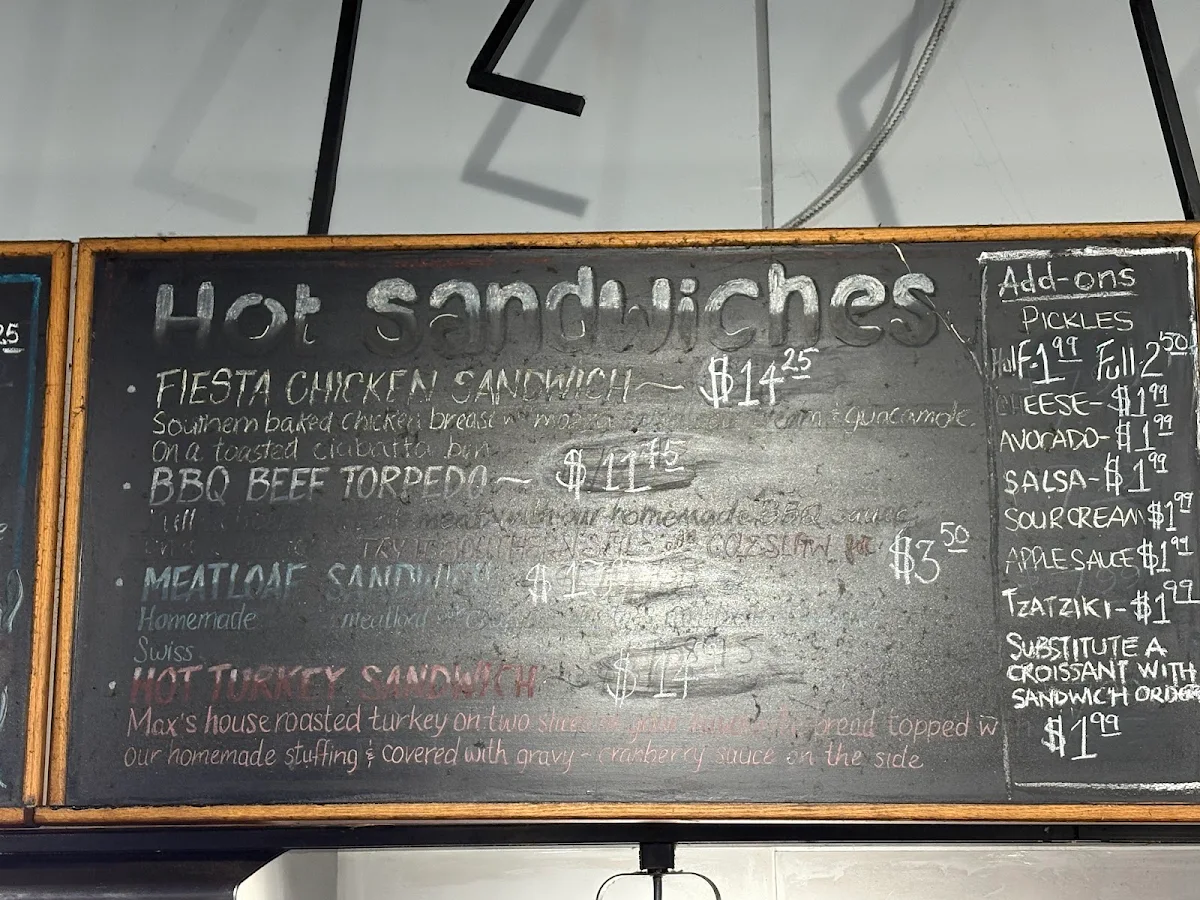 25
Hot Sandwiches
FIESTA CHICKEN SANDWICH ~ $14 25
Southern baked chicken breast w & guacamole.
On a toasted ciabatta bun
BBQ BEEF TORPEDO ~ $11
meat with our homemade BBQ sauce
TRY IT SOUTHERN STYLE COLESLAW $3 50
MEATLOAF SANDWICH $
Homemade meatloaf
Swiss
HOT TURKEY SANDWICH $14
Max's house roasted turkey on two bread topped w
our homemade stuffing & covered with gravy - cranberry sauce on the side
Add-ons
PICKLES
Half-1 99 Full-2 50
CHEESE-$1 99
AVOCADO-$1 99
SALSA-$1 99
SOUR CREAM $1 99
APPLE SAUCE $1 99
TZATZIKI-$1 99
SUBSTITUTE A
CROISSANT WITH
SANDWICH ORDER
$1 99